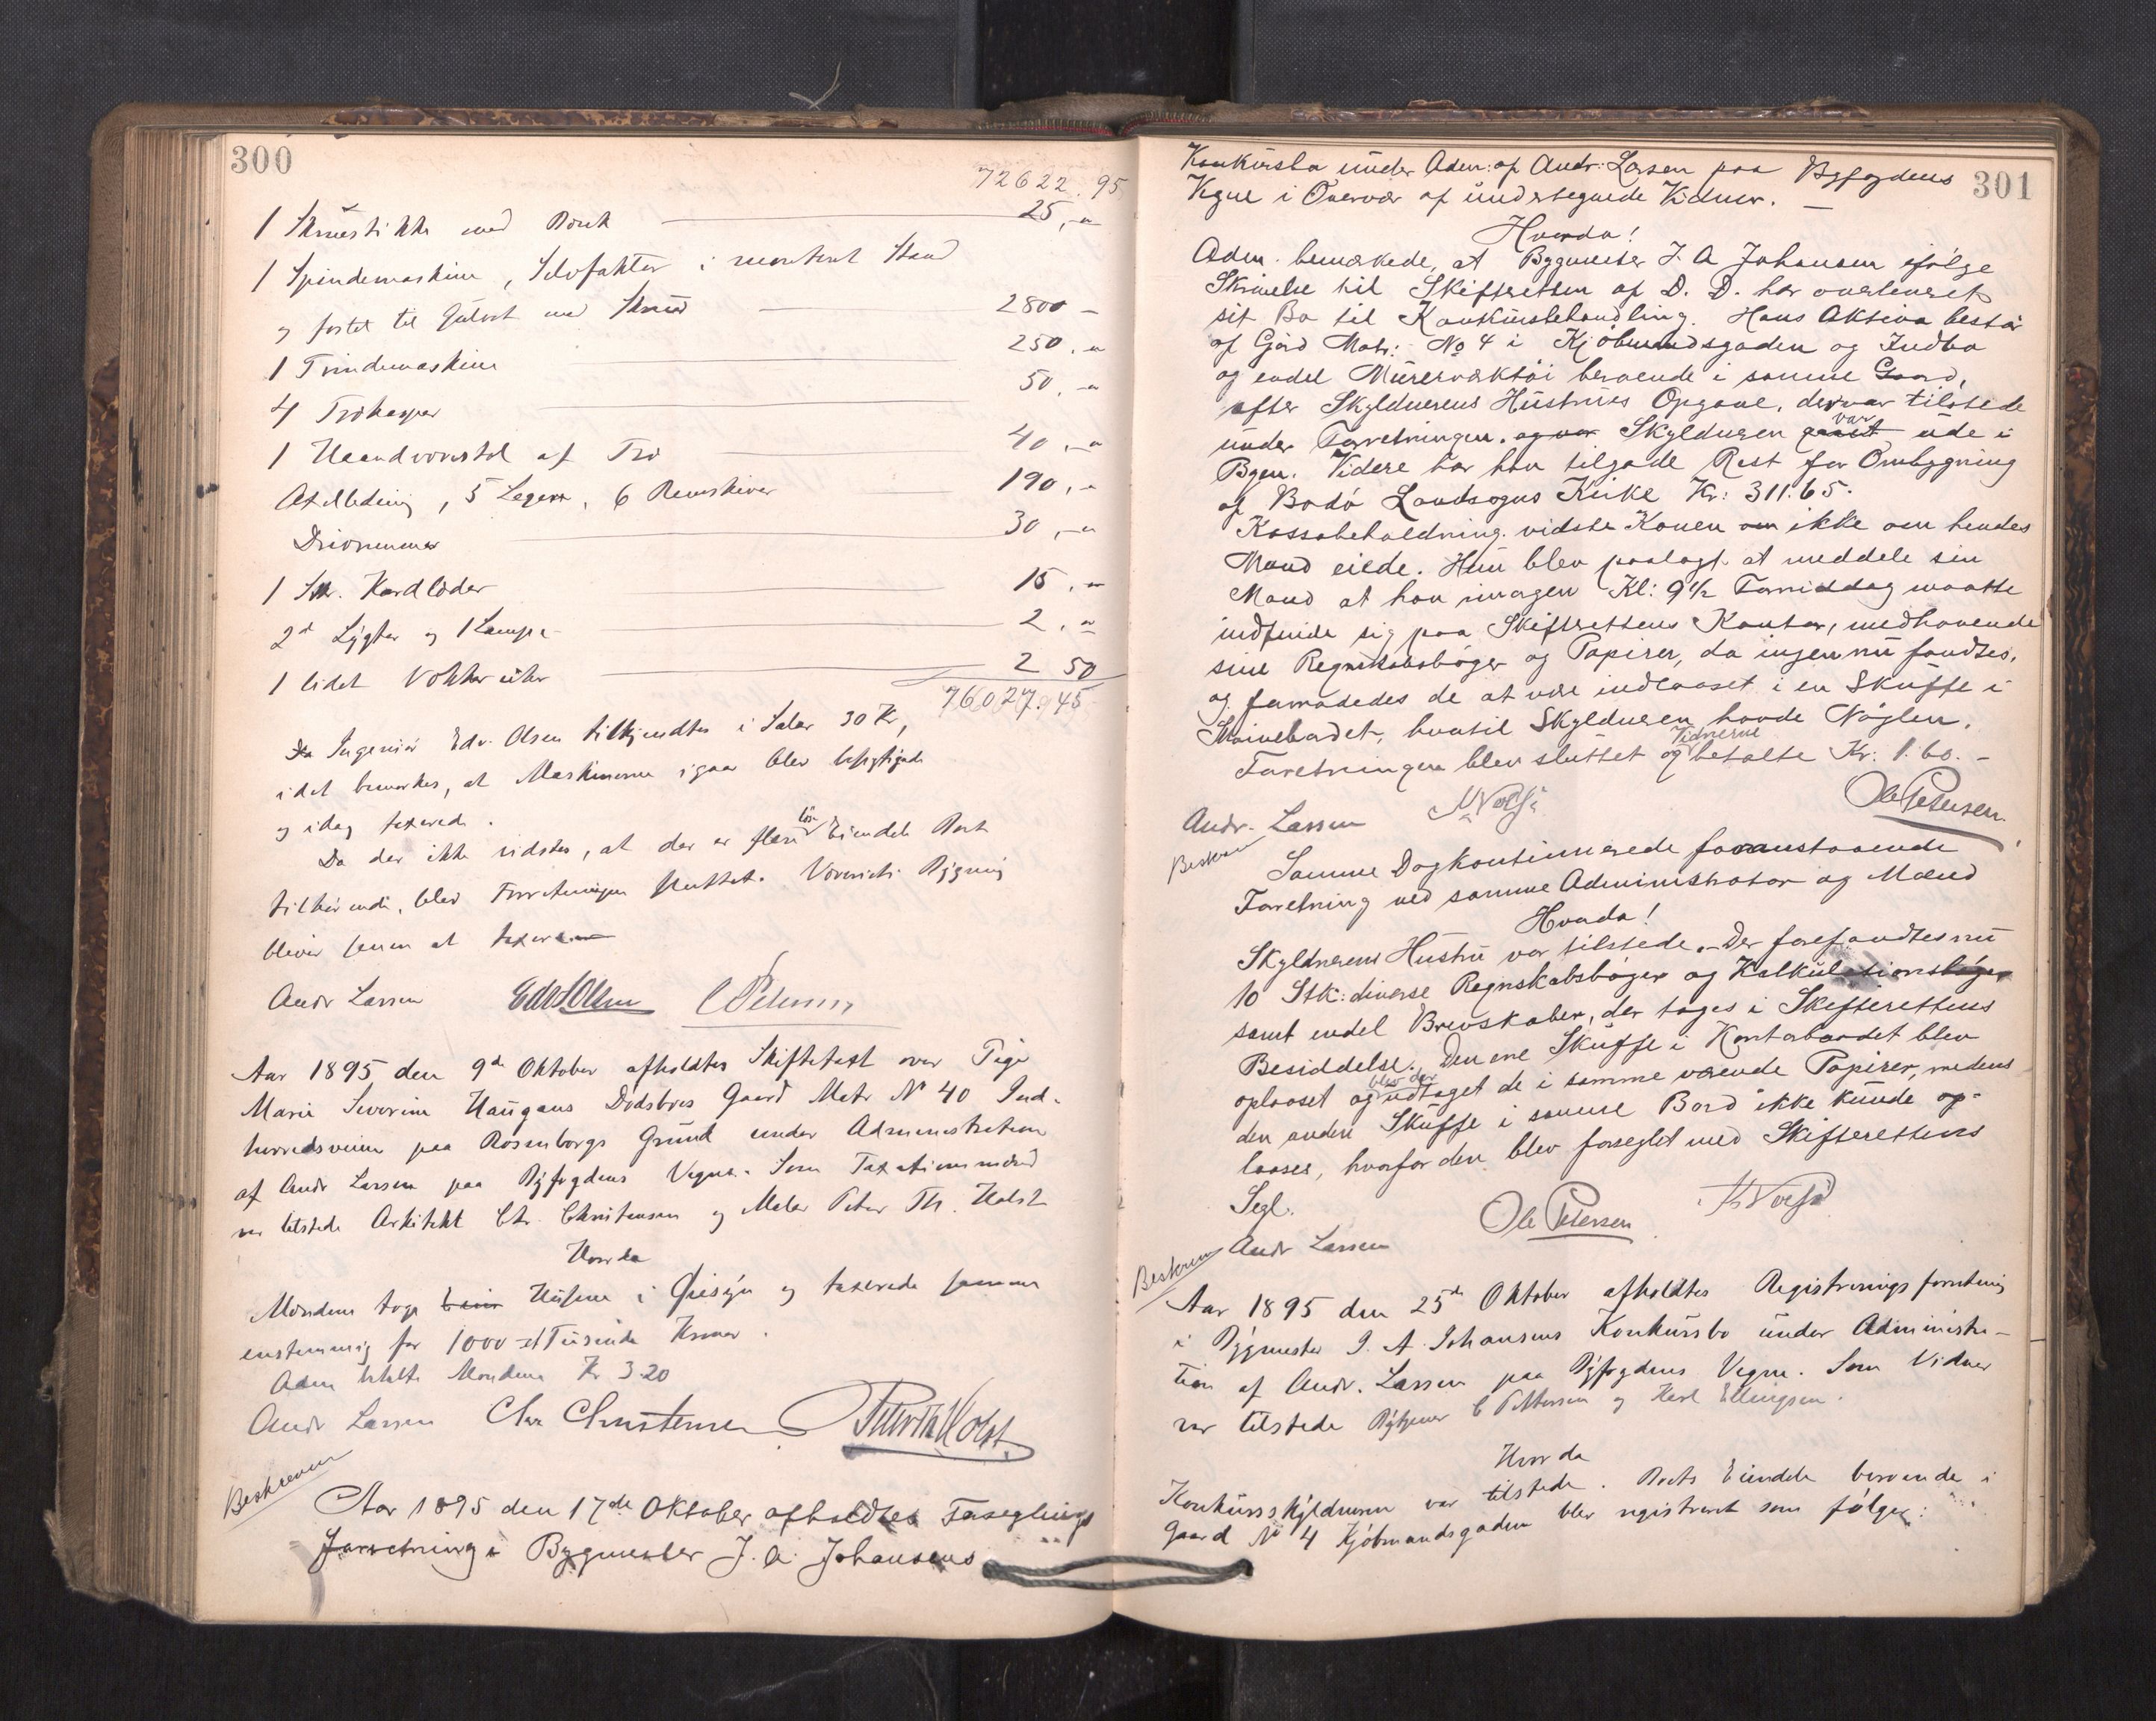 300
72622.95
1 Skruestikke med Bænk 25,-"
1 Spindemaskine, Selvfaktor i monteret Stand
og fæstet til Gulvet med Skrue 2800 -
1 Tvindemaskine 250,-"
4 Trækasser 50,-"
1 Haandvæverstol af Træ 40,-"
Axelledning, 5 Lagere, 6 Remskiver 190,-"
Drivremmer 30,-"
1 Stk. Kardlæder 15,-"
2 Lygter og 1 Lampe 2,-"
1 lidet Vækkeruhr 2 50
76027.45
Ingeniør Edv. Olsen tilkjendtes i Salær 30 Kr,
idet bemærkes, at Maskinerne igaar blev besigtigede
og idag taxerede.
Da der ikke vidstes, at der er flere løse Eiendele Boet
tilhørende, blev Forretningen sluttet. Væveriets Bygning
bliver senere at taxere
Andr Larsen Edv Olsen C Petersen
Aar 1895 den 9de Oktober afholdtes Skiftetaxt over Pige
Marie Severine Haugans Dødsbos Gaard Matr No 40 Ind-
herredsveien paa Rosenborgs Grund under Administration
af Andr Larsen paa Byfogdens Vegne. Som Taxationsmænd
var tilstede Arkitekt Chr. Christensen og Maler Peter Th. Holst
Hvorda
Mændene toge Husene i Øiesyn og taxerede samme
enstemmig for 1000 - et Tusinde Kroner.
Adm betalte Mændene Kr 3.20
Andr Larsen Chr Christensen Peter Th Holst
Beskreven
Aar 1895 den 17de Oktober afholdtes Forseglings
forretning i Bygmester J. A. Johansens
301
Konkursbo under Adm: af Andr: Larsen paa Byfogdens
Vegne i Overvær af undertegnede Vidner. —
Hvorda!
Adm. bemærkede, at Bygmester J. A Johansen ifølge
Skrivelse til Skifteretten af D. D. har overleveret
sit Bo til Konkursbehandling. Hans Aktiva består
af Gård Matr: No 4 i Kjøbmandsgaden og Indbo
og endel Murerværktøi beroende i samme Gaard,
efter Skyldnerens Hustrus Opgave, der var tilstede
under Forretningen. og var Skyldneren var ude i
Byen. Videre har han tilgode Rest for Ombygning
af Bodø Landsogns Kirke Kr: 311:65.
Kassabeholdning vidste Konen ikke om hendes
Mand eiede. Hun blev paalagt at meddele sin
Mand at han imorgen Kl: 9½ Formiddag maatte
indfinde sig paa Skifterettens Kontor, medhavende
sine Regnskabsbøger og Papirer, da ingen nu fandtes,
og formodedes de at være indlaaset i en Skuffe i
Skrivebordet, hvortil Skyldneren havde Nøglen.
Forretningen blev sluttet og Vidnerne betalte Kr: 1.60. -
Andr. Larsen Ole Petersen
Beskreven
Samme Dag kontinuerede foranstaaende
Forretning ved samme Administrator og Mænd
Hvorda!
Skyldnerens Hustru var tilstede. Der forefandtes nu
10 Stk: diverse Regnskabsbøger og Kalkulationsbøger
samt endel Brevskaber, der toges i Skifterettens
Besiddelse. Den ene Skuffe i Kontorbordet blev
oplaaset og blev der udtaget de i samme værende Papirer, medens
den anden Skuffe i samme Bord ikke kunde op-
laases, hvorfor den blev forseglet med Skifterettens
Segl.
Andr Larsen Ole Petersen
Beskreven
Aar 1895 den 25de Oktober afholdtes Registreringsforretning
i Bygmester J. A. Johansens Konkursbo under Administra-
tion af Andr. Larsen paa Byfogdens Vegne. Som Vidner
var tilstede C Pettersen og Karl Ellingsen.
Hvorda
Konkursskyldneren var tilstede. Boets Eiendele beroende i
Gaard No 4 Kjøbmandsgaden blev registreret som følger: